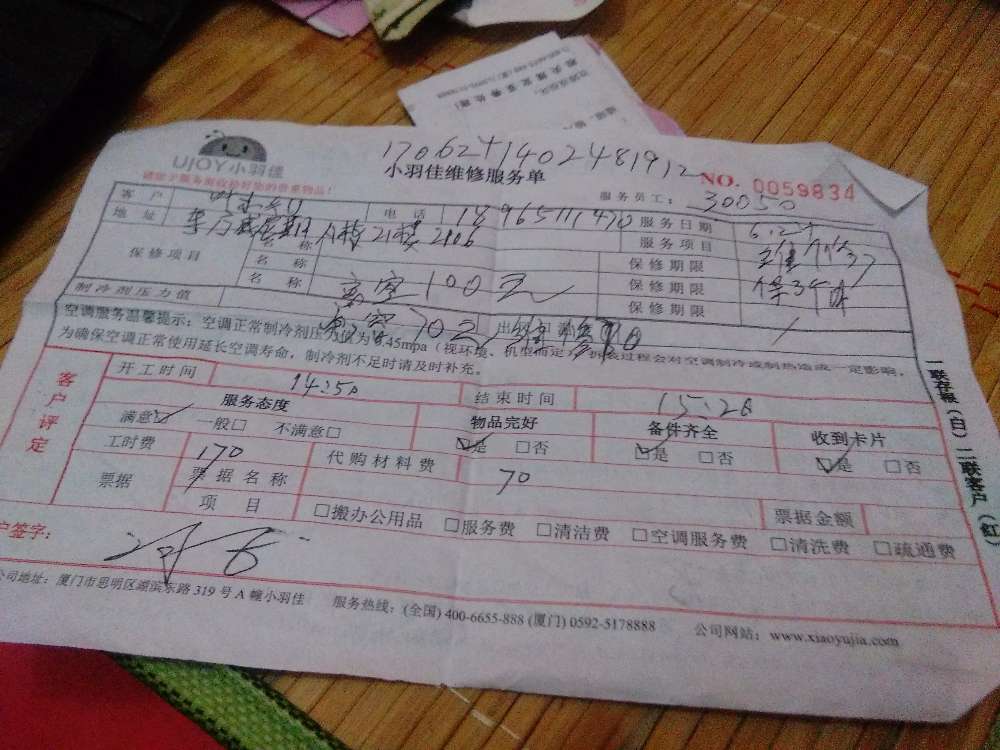 17062+1402481912
UJOY小羽佳
小羽佳维修服务单
NO. 0059834
请您于服务前收捡好您的贵重物品!
服务员工: 30050
客户
电话 18965111470
服务日期
地址 A栋21楼2106
服务项目
保修项目
名称
保修期限
名称
保修期限
名称 高空100元
保修期限
制冷剂压力值
空调服务温馨提示:空调正常制冷剂压力值为0.45mpa(视环境、机型而定)拆装过程会对空调制冷或制热造成一定影响,
为确保空调正常使用延长空调寿命,制冷剂不足时请及时补充。
客户评定
开工时间 14:50
结束时间 15:20
服务态度
物品完好
备件齐全
收到卡片
满意☑ 一般□ 不满意□
☑是 □否
☑是 □否
☑是 □否
工时费 170
代购材料费 70
票据
票据名称
票据金额
项目 □搬办公用品 □服务费 □清洁费 □空调服务费 □清洗费 □疏通费
户签字:
公司地址:厦门市思明区湖滨东路319号A幢小羽佳 服务热线:(全国)400-6655-888 (厦门)0592-5178888 公司网站:www.xiaoyujia.com
一联存根(白)二联客户(红)